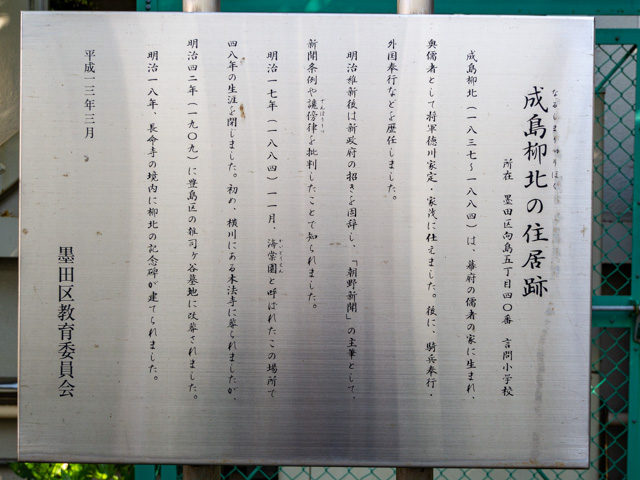 なるしまりゅうほく
成島柳北の住居跡
所在 墨田区向島五丁目四〇番 言問小学校
成島柳北（一八三七～一八八四）は、幕府の儒者の家に生まれ、
奥儒者として将軍徳川家定・家茂に仕えました。後に、騎兵奉行・
外国奉行などを歴任しました。
明治維新後は新政府の招きを固辞し、「朝野新聞」の主筆として、
新聞条例や讒傍律を批判したことで知られました。
ざんぼうりつ
明治一七年（一八八四）一一月、海棠園と呼ばれたこの場所で
かいどうえん
四八年の生涯を閉じました。初め、横川にある本法寺に葬られましたが、
明治四二年（一九〇九）に豊島区の雑司ヶ谷墓地に改葬されました。
明治一八年、長命寺の境内に柳北の記念碑が建てられました。
平成一三年三月
墨田区教育委員会